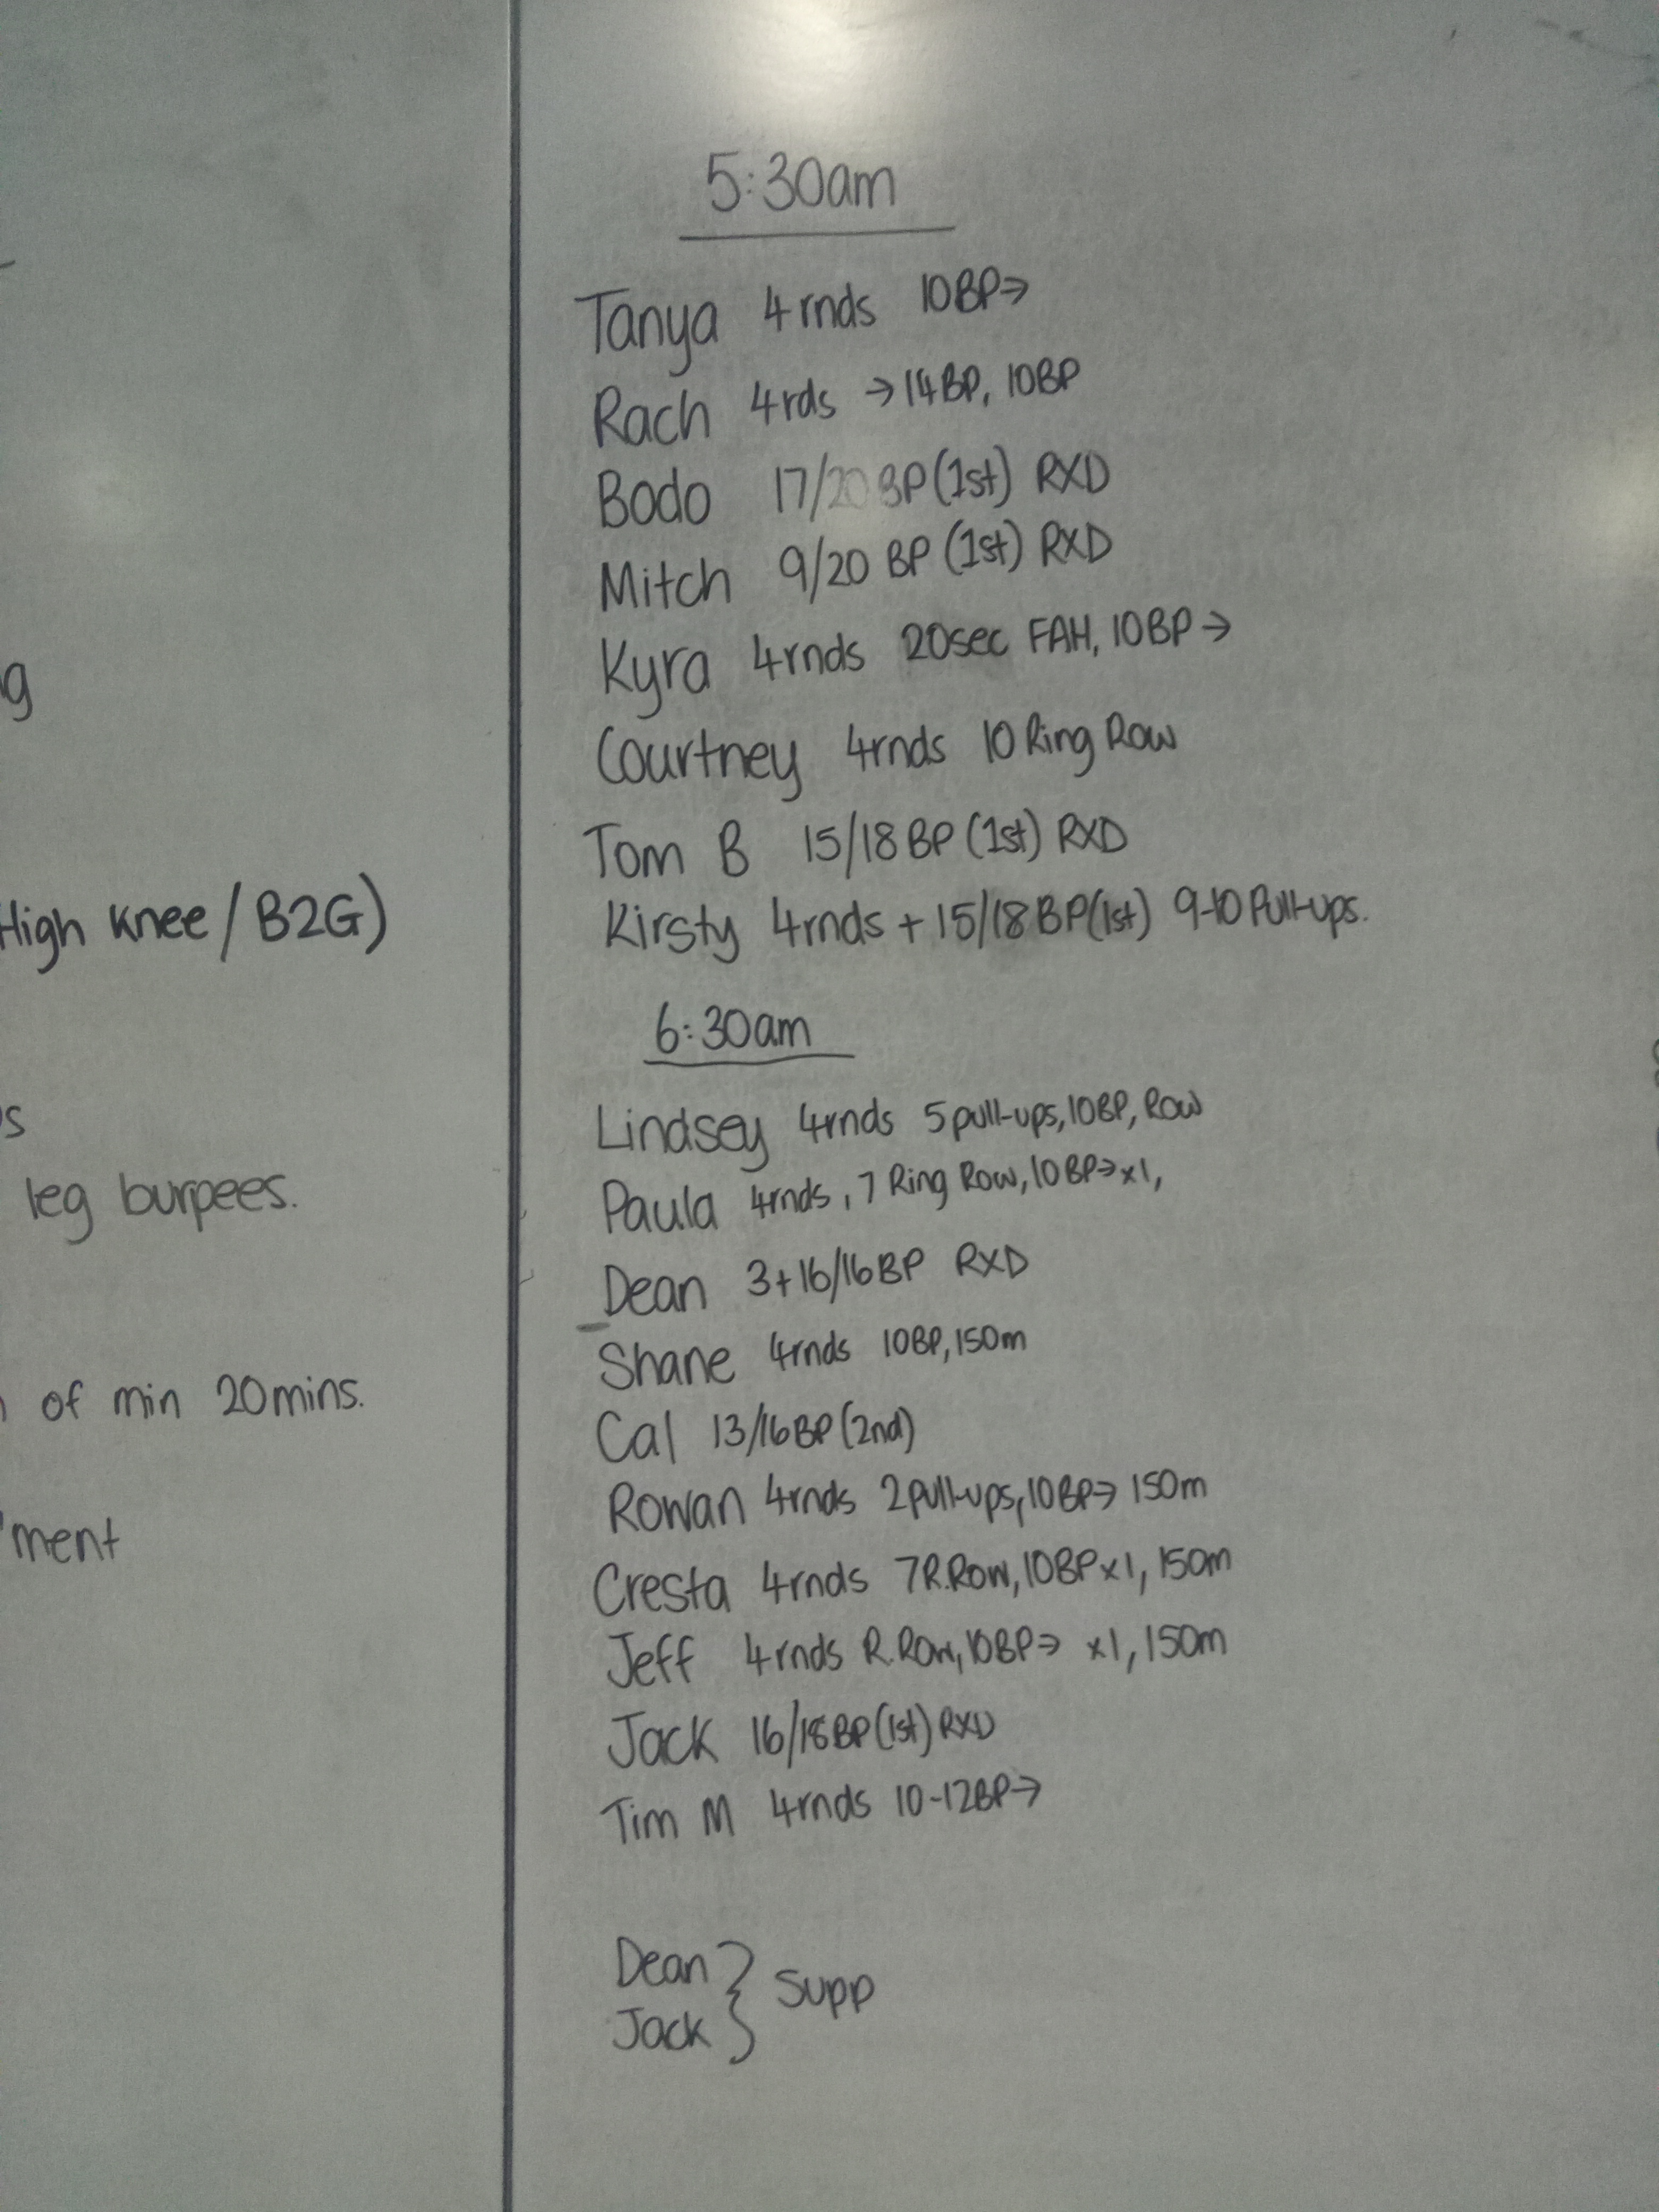 g
High knee/B2G)
s
leg burpees.
of min 20mins.
ment
5:30am
Tanya 4rnds 10BP→
Rach 4rds →14BP, 10BP
Bodo 17/20BP(1st) RXD
Mitch 9/20 BP (1st) RXD
Kyra 4rnds 20sec FAH, 10BP→
Courtney 4rnds 10 Ring Row
Tom B 15/18BP (1st) RXD
Kirsty 4rnds + 15/18BP(1st) 9-10 Pull-ups.
6:30am
Lindsey 4rnds 5pull-ups, 10BP, Row
Paula 4rnds, 7 Ring Row, 10BP→x1,
Dean 3+16/16BP RXD
Shane 4rnds 10BP, 150m
Cal 13/16BP(2nd)
Rowan 4rnds 2pull-ups, 10BP→ 150m
Cresta 4rnds 7R.Row, 10BPx1, 150m
Jeff 4rnds R.Row, 10BP→ x1, 150m
Jack 16/18BP(1st) RXD
Tim M 4rnds 10-12BP→
Dean } Supp
Jack